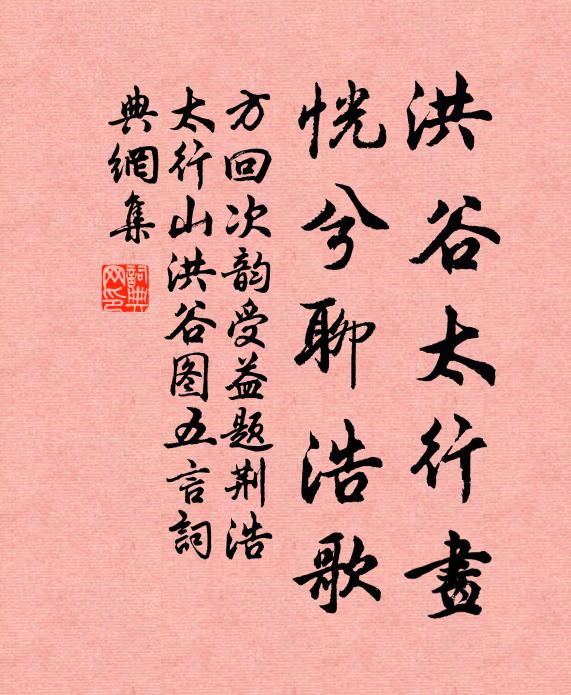 洪谷太行畫
恍兮聊浩歌
方回次韵受益题荆浩
太行山洪谷图五言詞
典網集
詞典網印